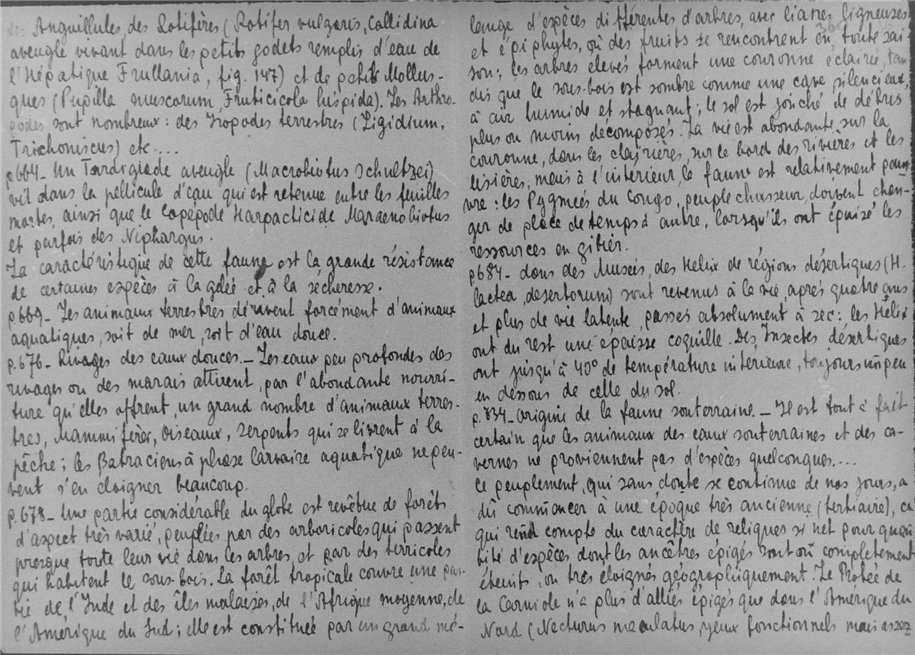 des Anguillules, des Rotifères (Rotifer vulgaris, Callidina
aveugle vivant dans les petits godets remplis d'eau de
l'Hépatique Frullania, fig. 147) et de petits Mollus-
ques (Pupilla muscorum, Fruticicola hispida). Les Arthro-
podes sont nombreux : des Isopodes terrestres (Ligidium,
Trichoniscus) etc....
p.664 - Un Tardigrade aveugle (Macrobiotus Schultzei)
vit dans la pellicule d'eau qui est retenue entre les feuilles
mortes, ainsi que le Copépode Harpacticide Maraenobiotus
et parfois des Niphargus.
La caractéristique de cette faune est la grande résistance
de certaines espèces à la gelée et à la sécheresse.
p.669 - Les animaux terrestres dérivent forcément d'animaux
aquatiques, soit de mer, soit d'eau douce.
p.676 - Rivages des eaux douces. - Les eaux peu profondes des
rivages ou des marais attirent, par l'abondante nourri-
ture qu'elles offrent, un grand nombre d'animaux terres-
tres, Mammifères, Oiseaux, Serpents qui se livrent à la
pêche ; les Batraciens à phase larvaire aquatique ne peu-
vent s'en éloigner beaucoup.
p.678 - Une partie considérable du globe est revêtue de forêts
d'aspect très varié, peuplées par des arboricoles qui passent
presque toute leur vie dans les arbres, et par des terricoles
qui habitent le sous-bois. La forêt tropicale couvre une par-
tie de l'Inde et des îles malaises, de l'Afrique moyenne, de
l'Amérique du Sud ; elle est constituée par un grand mé-
lange d'espèces différentes d'arbres, avec lianes ligneuses
et épiphytes, où des fruits se rencontrent en toute sai-
son ; les arbres élevés forment une couronne éclairée, tan
dis que le sous-bois est sombre comme une cave silencieuse,
à air humide et stagnant ; le sol est jonché de débris
plus ou moins décomposés. La vie est abondante sur la
couronne, dans les clairières, sur le bord des rivières et les
lisières, mais à l'intérieur, la faune est relativement pau-
vre : les Pygmées du Congo, peuple chasseur, doivent chan-
ger de place de temps à autre, lorsqu'ils ont épuisé les
ressources en gibier.
p.684 - dans des Musées, des Helix de régions désertiques (H.
lactea, desertorum) sont revenus à la vie, après quatre ans
et plus de vie latente, passés absolument à sec : les Hélix
ont du rest une épaisse coquille. Des Insectes désertiques
ont jusqu'à 40° de température intérieure, toujours un peu
en dessous de celle du sol.
p.734 - Origine de la faune souterraine. - Il est tout à fait
certain que les animaux des eaux souterraines et des ca-
vernes ne proviennent pas d'espèces quelconques....
Ce peuplement, qui sans doute se continue de nos jours, a
dû commencer à une époque très ancienne (tertiaire), ce
qui rend compte du caractère de reliques si net pour quan
tité d'espèces dont les ancêtres épigés sont ou complètement
éteints, ou très éloignés géographiquement. Le Protée de
la Carniole n'a plus d'alliés épigés que dans l'Amérique du
Nord (Necturus maculatus, yeux fonctionnels mais assez